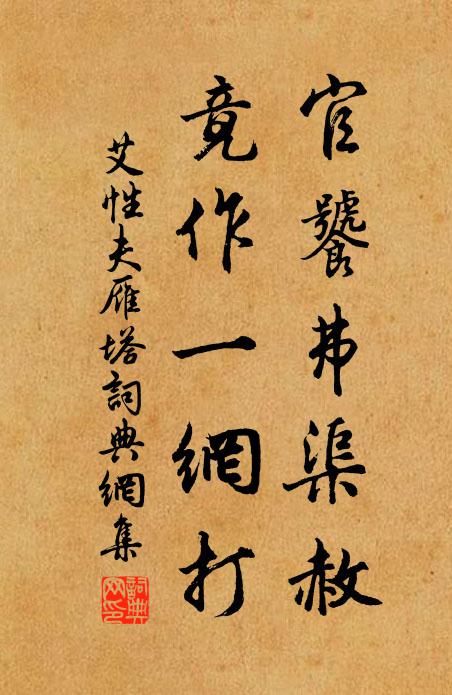 官饕弗渠赦
竟作一網打
艾性夫雁塔詞典網集
詞典網印